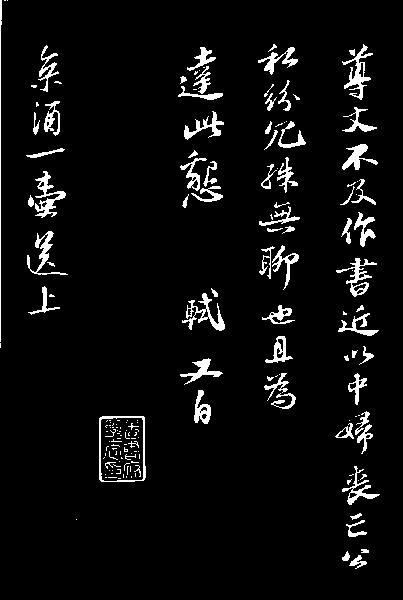 尊丈不及作書近以中婦喪亡公
私紛冗殊無聊也且為
達此懇 軾又白
酒一壺送上